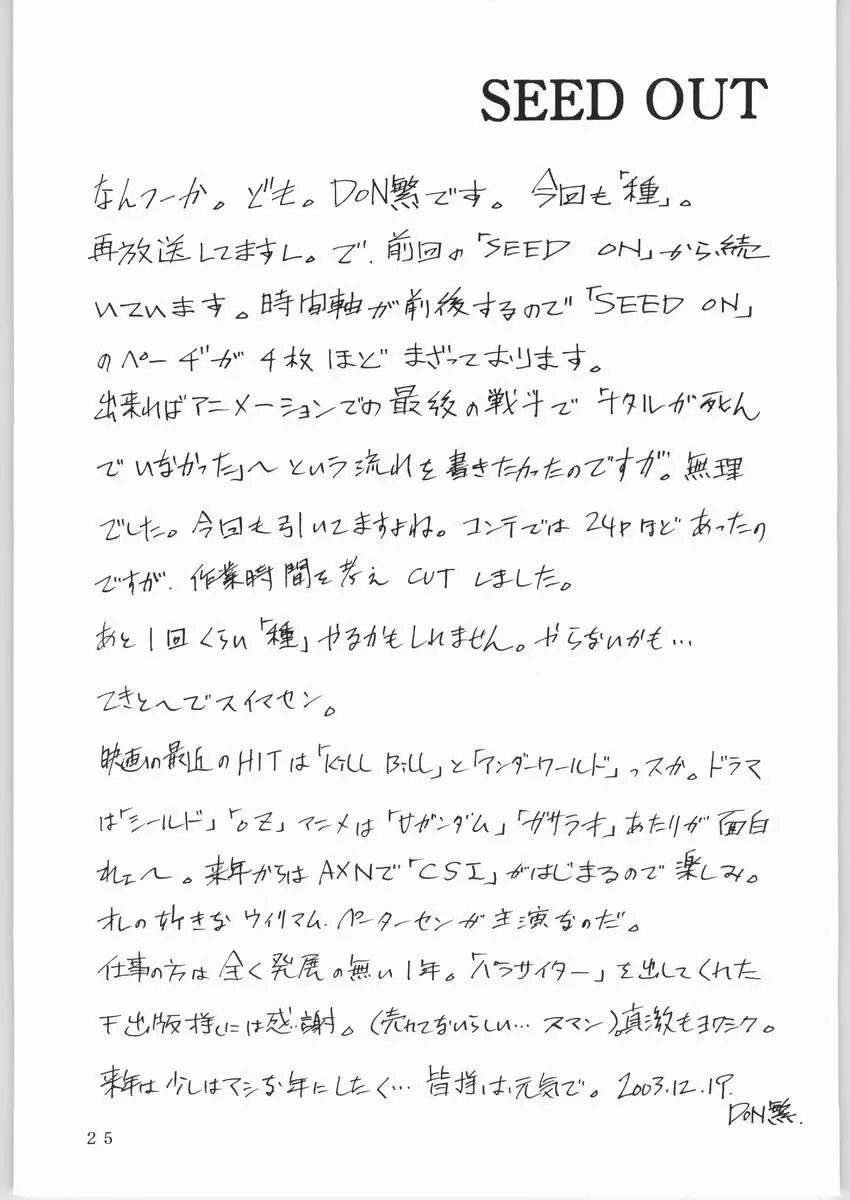 SEED OUT
なんつーか。ども。DON繁です。今回も「種」。
再放送してますし。で、前回の「SEED ON」から続
いています。時間軸が前後するので「SEED ON」
のページが4枚ほどまざっております。
出来ればアニメーションでの最後の戦斗で「ナタルが死ん
でいなかった」〜という流れを書きたかったのですが。無理
でした。今回も引いてますよね。コンテでは24Pほどあったの
ですが、作業時間を考えCUTしました。
あと1回くらい「種」やるかもしれません。やらないかも…
てきと〜でスイマセン。
映画の最近のHITは「Kill Bill」と「アンダーワールド」っスか。ドラマ
は「シールド」「OZ」アニメは「サガンダム」「ガサラキ」あたりが面白
れェ〜。来年からはAXNで「CSI」がはじまるので楽しみ。
オレの好きなウイリアム.ペーターセンが主演なのだ。
仕事の方は全く発展の無い1年。「パラサイター」を出してくれた
出版様には感謝。(売れてないらしい…スマン)真激もヨロシク。
来年は少しはマシな年にしたく…皆様は元気で。2003.12.19.
DON繁.
25